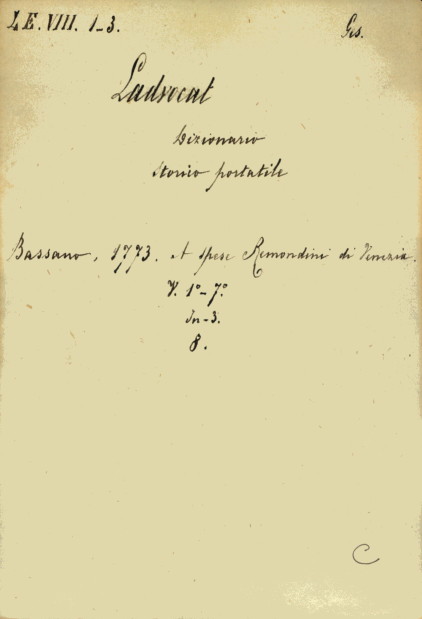 L E. VIII. 1-3. Gs.
Ladvocat
Dizionario
storico portatile
Bassano, 1773. A spese Remondini di Venezia.
V. 1°-7°
In-3.
8.
C